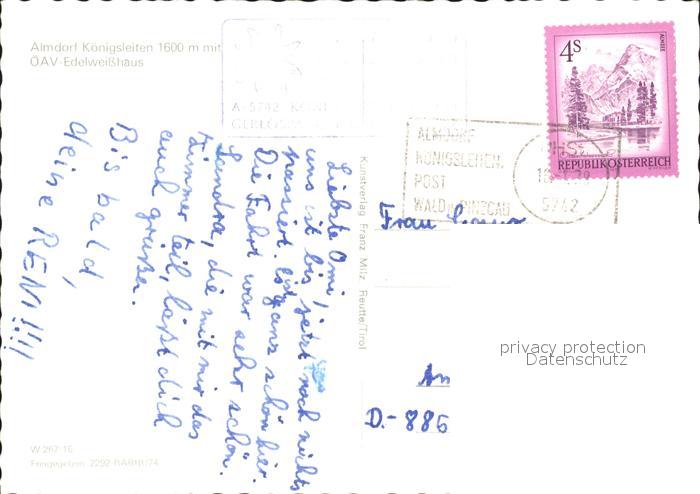 Almdorf Königsleiten 1600 m mit
ÖAV-Edelweißhaus
A-5742 KÖNI
GERLOS
4S
ALMSEE
REPUBLIK ÖSTERREICH
ALMDORF
KÖNIGSLEITEN.
POST
WALD i. PINZGAU
5742
Frau
An
D.-886
privacy protection
Datenschutz
Kunstverlag Franz Milz Reutte/Tirol
Liebste Omi,
uns ist bis jetzt noch nichts
passiert. Es ist ganz schön hier.
Die Fahrt war sehr schön.
Sandra, die mit mir das
Zimmer teil, läßt dich
auch grüßen.
Bis bald,
deine RENI!!!
W 267-16
Freigegeben: 2292-RABIB:74